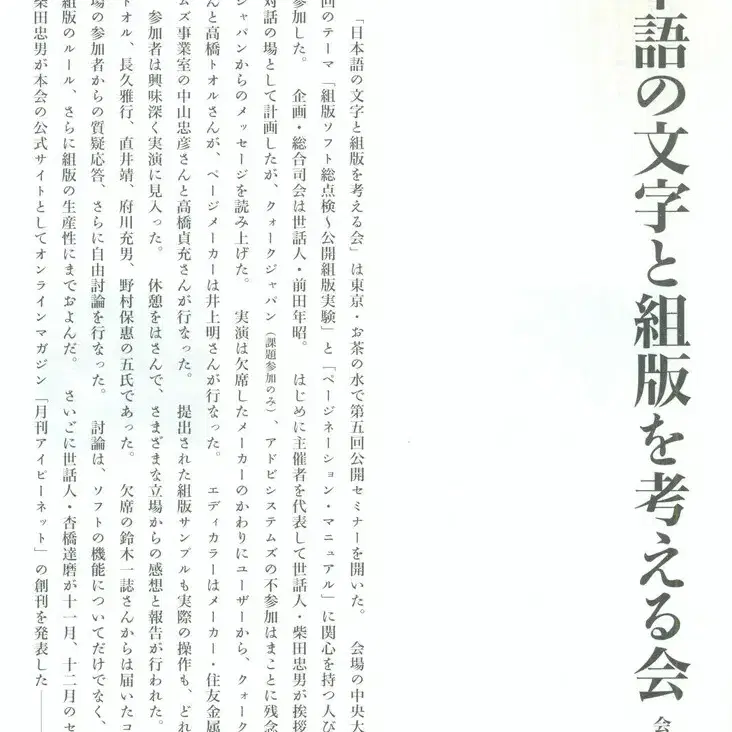 語の文字と組版を考える会
会
「日本語の文字と組版を考える会」は東京・お茶の水で第五回公開セミナーを開いた。　会場の中央大
回のテーマ「組版ソフト総点検～公開組版実験」と「ページネーション・マニュアル」に関心を持つ人び
参加した。　企画・総合司会は世話人・前田年昭。　はじめに主催者を代表して世話人・柴田忠男が挨拶
対話の場として計画したが、クォークジャパン（課題参加のみ）、アドビシステムズの不参加はまことに残念
ジャパンからのメッセージを読み上げた。　実演は欠席したメーカーのかわりにユーザーから、クォーク
んと高橋トオルさんが、ページメーカーは井上明さんが行なった。　エディカラーはメーカー・住友金属
ムズ事業室の中山忠彦さんと高橋貞充さんが行なった。　提出された組版サンプルも実際の操作も、どれ
参加者は興味深く実演に見入った。　休憩をはさんで、さまざまな立場からの感想と報告が行われた。
トオル、長久雅行、直井靖、府川充男、野村保惠の五氏であった。　欠席の鈴木一誌さんからは届いたコ
場の参加者からの質疑応答、さらに自由討論を行なった。　討論は、ソフトの機能についてだけでなく、
組版のルール、さらに組版の生産性にまでおよんだ。　さいごに世話人・杏橋達磨が十一月、十二月のセ
柴田忠男が本会の公式サイトとしてオンラインマガジン「月刊アイピーネット」の創刊を発表した——